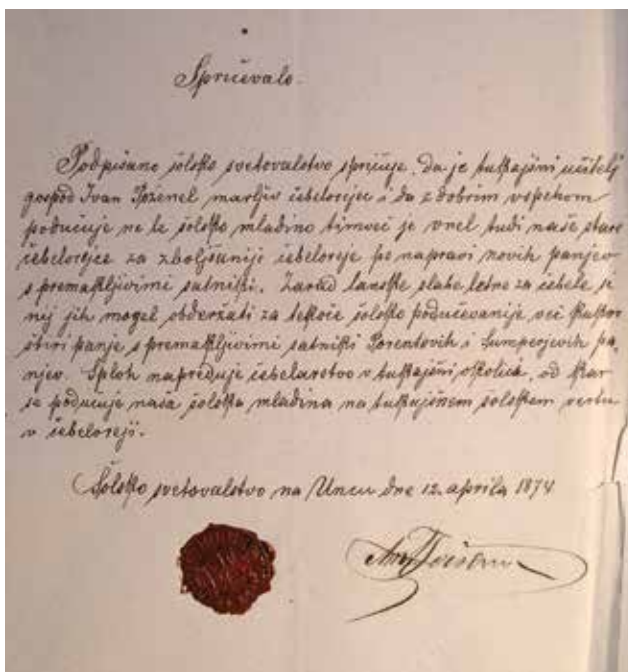 Spričevalo.
Podpisano šolsko svetovalstvo spričuje, da je tukajšni učitelj
gospod Ivan Poženel marljiv čebelorejec i da z dobrim vspehom
podučuje ne le šolsko mladino timveč je vnel tudi naše stare
čebelorejce za zboljšanji čebeloreje po napravi novih panjev
s premakljivimi satniki. Zavad lanske slabe letne za čebele si
nej jih mogel obderžati za tekoče šolsko podučevanije več kakor
štiri panje s premakljivimi satniki Porentovih i pa,
njev. Sploh napreduje čebelarstvo v tukajšni okolici, od kar
se podučuje naša šolska mladina na tukajšnem šolskem vertu
v čebeloreji.
Šolsko svetovalstvo na Uncu dne 12. aprila 1874